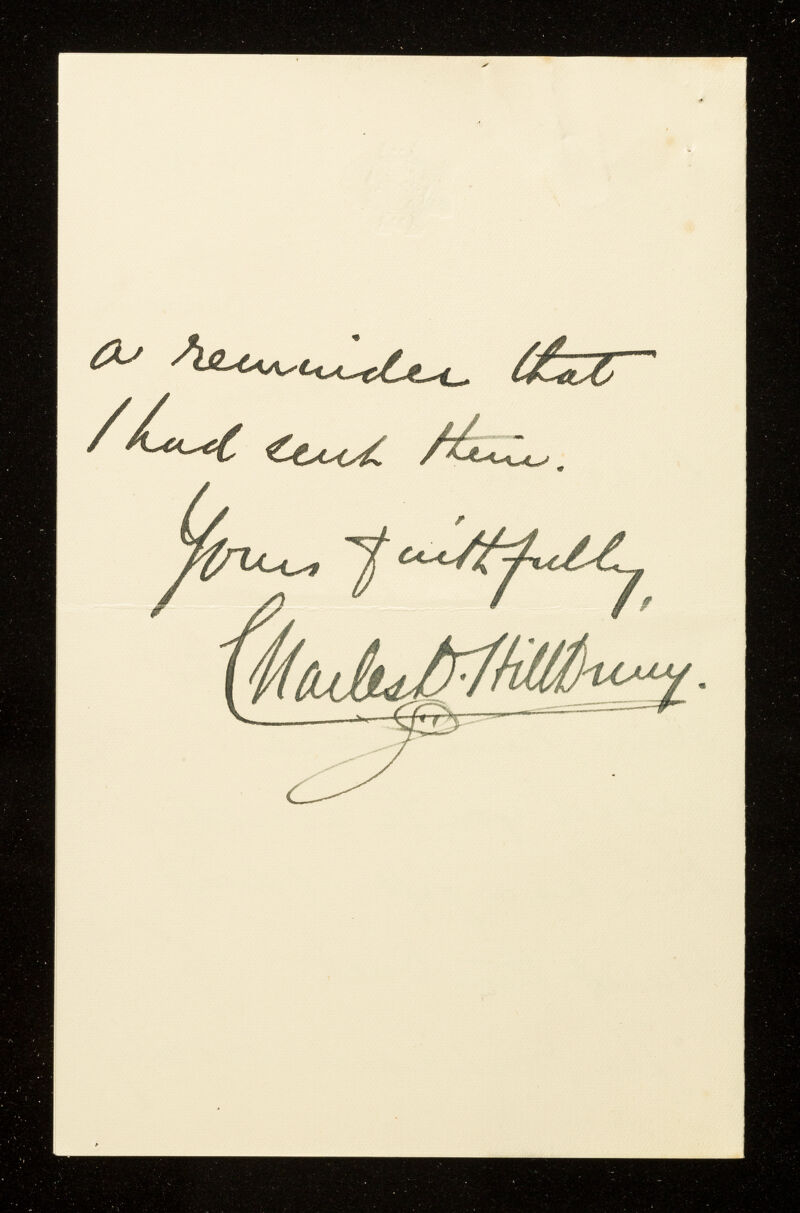 a reminder that
I had sent them.
Yours faithfully,
Charles D. Hill Drury.